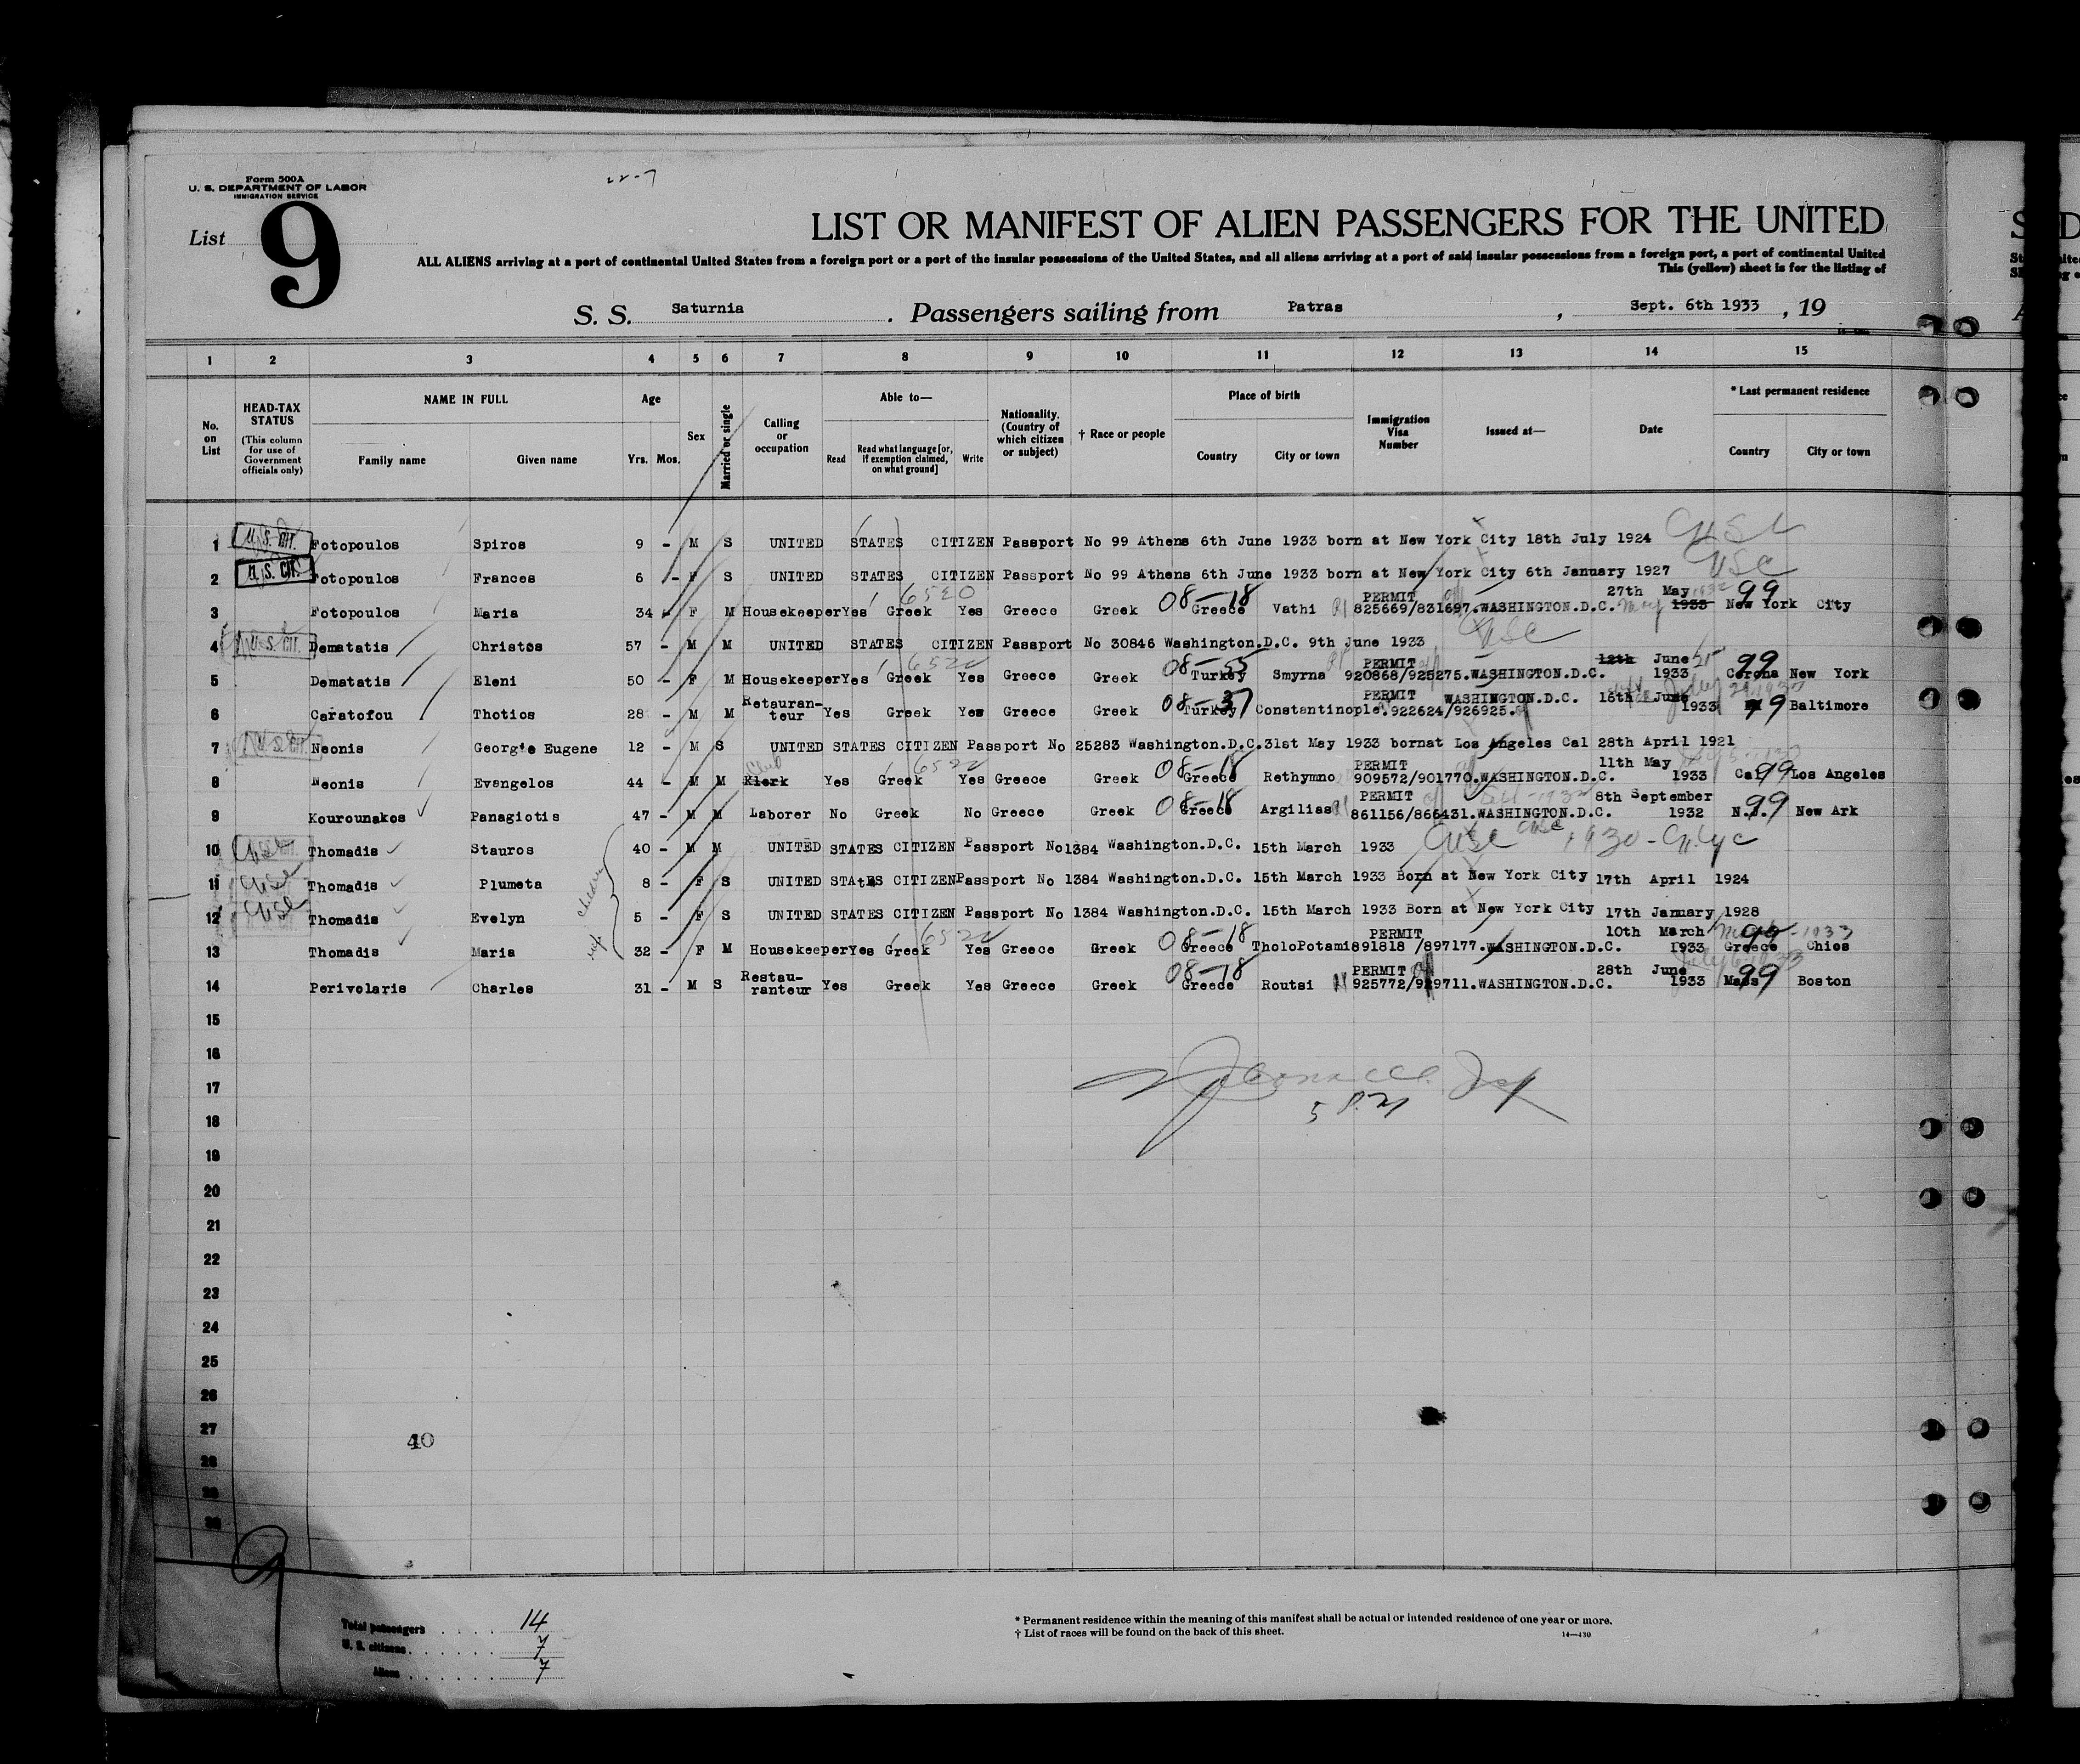 Form 500A
U. S. DEPARTMENT OF LABOR
IMMIGRATION SERVICE
List 9
LIST OR MANIFEST OF ALIEN PASSENGERS FOR THE UNITED
ALL ALIENS arriving at a port of continental United States from a foreign port or a port of the insular possessions of the United States, and all aliens arriving at a port of said insular possessions from a foreign port, a port of continental United
This (yellow) sheet is for the listing of
S. S. Saturnia . Passengers sailing from Patras , Sept. 6th 1933 , 19
1 2 3 4 5 6 7 8 9 10 11 12 13 14 15
No. on List
HEAD-TAX STATUS (This column for use of Government officials only)
NAME IN FULL
Family name Given name
Age
Yrs. Mos.
Sex
Married or single
Calling or occupation
Able to—
Read Read what language [or, if exemption claimed, on what ground] Write
Nationality. (Country of which citizen or subject)
† Race or people
Place of birth
Country City or town
Immigration Visa Number
Issued at—
Date
* Last permanent residence
Country City or town
1 U.S. CIT. Fotopoulos Spiros 9 - M S UNITED STATES CITIZEN Passport No 99 Athens 6th June 1933 born at New York City 18th July 1924 USC
2 U.S. CIT. Fotopoulos Frances 6 - F S UNITED STATES CITIZEN Passport No 99 Athens 6th June 1933 born at New York City 6th January 1927 USC
3 Fotopoulos Maria 34 - F M Housekeeper Yes Greek 6520 Yes Greece Greek 08-18 Greece Vathi PERMIT 825669/831697. WASHINGTON.D.C. 27th May 1933 99 New York City
4 U.S. CIT. Dematatis Christos 57 - M M UNITED STATES CITIZEN Passport No 30846 Washington.D.C. 9th June 1933 USC
5 Dematatis Eleni 50 - F M Housekeeper Yes Greek 6522 Yes Greece Greek 08-55 Turkey Smyrna PERMIT 920868/925275. WASHINGTON.D.C. 12th June 1933 99 Corona New York
6 Caratofou Thotios 28 - M M Retauran-teur Yes Greek Yes Greece Greek 08-37 Turkey Constantinople. PERMIT 922624/926925. WASHINGTON.D.C. 18th June 1933 99 Baltimore
7 U.S. CIT. Neonis Georgie Eugene 12 - M S UNITED STATES CITIZEN Passport No 25283 Washington.D.C.31st May 1933 bornat Los Angeles Cal 28th April 1921
8 Neonis Evangelos 44 - M M Klerk Yes Greek 6522 Yes Greece Greek 08-18 Greece Rethymno PERMIT 909572/901770. WASHINGTON.D.C. 11th May 1933 Cal 99 Los Angeles
9 Kourounakos Panagiotis 47 - M M Laborer No Greek No Greece Greek 08-18 Greece Argilias PERMIT 861156/866431. WASHINGTON.D.C. 8th September 1932 N.J. 99 New Ark
10 USC Thomadis Stauros 40 - M M UNITED STATES CITIZEN Passport No1384 Washington.D.C. 15th March 1933 USC 1930
11 USC Thomadis Plumeta 8 - F S UNITED STAtES CITIZENPassport No 1384 Washington.D.C. 15th March 1933 Born at New York City 17th April 1924
12 USC Thomadis Evelyn 5 - F S UNITED STATES CITIZEN Passport No 1384 Washington.D.C. 15th March 1933 Born at New York City 17th January 1928
13 Thomadis Maria 32 - F M Housekeeper Yes Greek 6522 Yes Greece Greek 08-18 Greece TholoPotami PERMIT 891818 /897177. WASHINGTON.D.C. 10th March 1933 99 Greece Chios
14 Perivolaris Charles 31 - M S Restau-ranteur Yes Greek Yes Greece Greek 08-18 Greece Routsi PERMIT 925772/929711. WASHINGTON.D.C. 28th June 1933 Mass 99 Boston
15
16
17
18
19
20
21
22
23
24
25
26
27
40
28
29
30
Total passengers 14
U. S. citizens 7
Aliens 7
* Permanent residence within the meaning of this manifest shall be actual or intended residence of one year or more.
† List of races will be found on the back of this sheet.
14—430